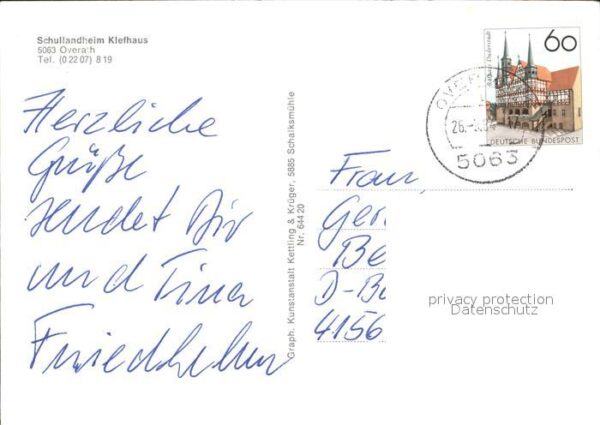 Schullandheim Klefhaus
5063 Overath
Tel. (0 22 07) 8 19
Herzliche
Grüße
sendet Dir
und Tina
Friedhelm
Graph. Kunstanstalt Kettling & Krüger, 5885 Schalksmühle
Nr. 644 20
60
DEUTSCHE BUNDESPOST
5063
Franz
Ger
Be
D-Bu
4156
privacy protection
Datenschutz